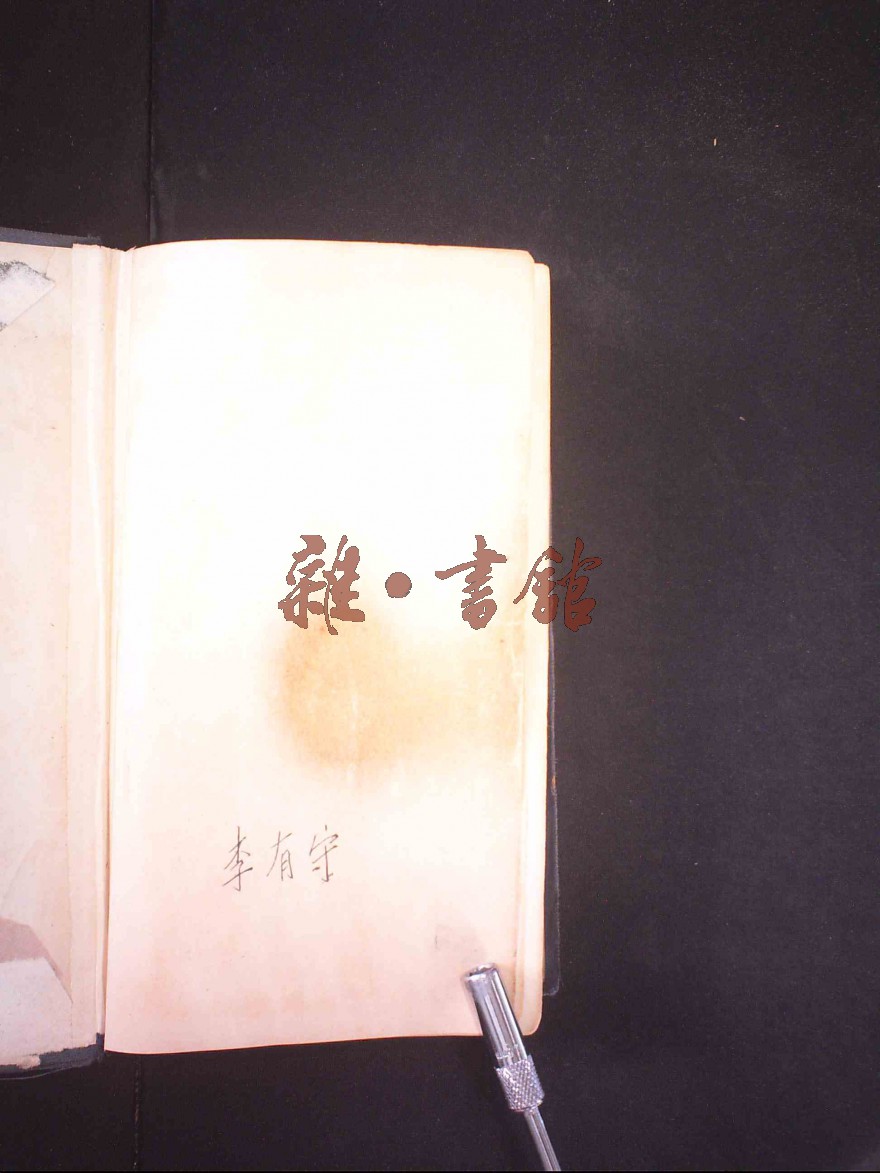 雜·書館
李有守